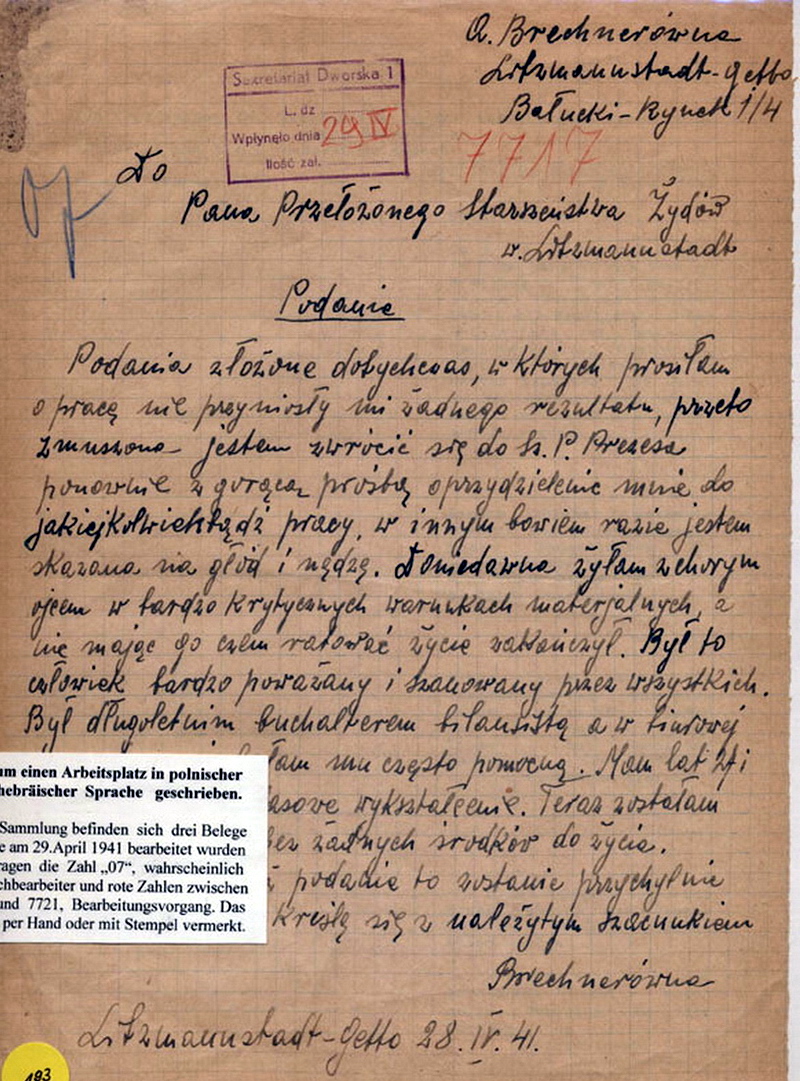 A. Brechnerówna
Litzmannstadt-Getto
Bałucki-Rynek 1/4
Sekretariat Dworska 1
L. dz
Wpłynęło dnia 29 IV
Ilość zał.
7717
07
Do
Pana Przełożonego Starszeństwa Żydów
w. Litzmannstadt
Podanie
Podania złożone dotychczas, w których prosiłam
o pracę nie przyniosły mi żadnego rezultatu, przeto
zmuszona jestem zwrócić się do Sz. P. Prezesa
ponownie z gorącą prośbą o przydzielenie mnie do
jakiejkolwiekbądź pracy, w innym bowiem razie jestem
skazana na głód i nędzę. Doniedawna żyłam z chorym
ojcem w bardzo krytycznych warunkach materjalnych, a
nie mając go czem ratować życie zakończył. Był to
człowiek bardzo poważany i szanowany przez wszystkich.
Był długoletnim buchalterem bilansistą a w biurowej
łam mu często pomocną. Mam lat i
asowe wykształcenie. Teraz zostałam
bez żadnych środków do życia.
podanie to zostanie przychylnie
kreślę się z należytym szacunkiem
Brechnerówna
Litzmannstadt-Getto 28. IV. 41.
um einen Arbeitsplatz in polnischer
hebräischer Sprache geschrieben.
Sammlung befinden sich drei Belege
e am 29.April 1941 bearbeitet wurden
ragen die Zahl „07“, wahrscheinlich
chbearbeiter und rote Zahlen zwischen
und 7721, Bearbeitungsvorgang. Das
per Hand oder mit Stempel vermerkt.
493